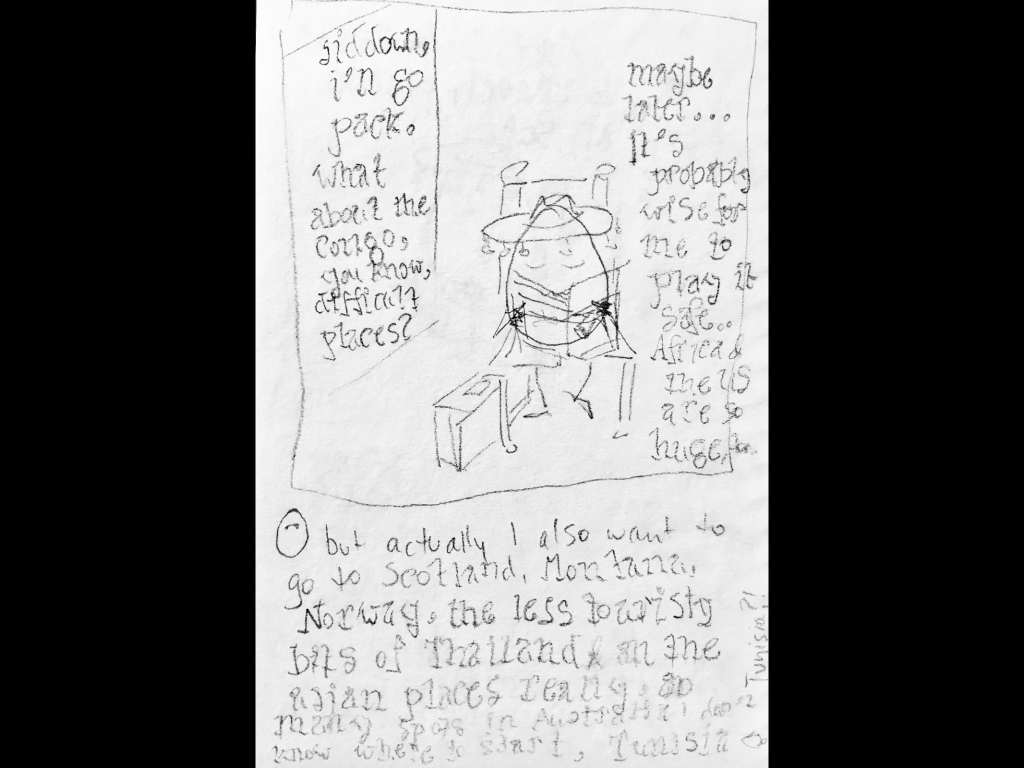 siddown,
i'll go
pack.
what
about the
Congo,
you know,
difficult
places?
maybe
later...
It's
probably
wise for
me to
play it
safe..
Africa &
the US
are so
huge,
but actually I also want to
go to Scotland, Montana,
Norway, the less touristy
bits of Thailand & all the
asian places really, so
many spots in Australia I don't
know where to start, Tunisia
Or Tunisia?!